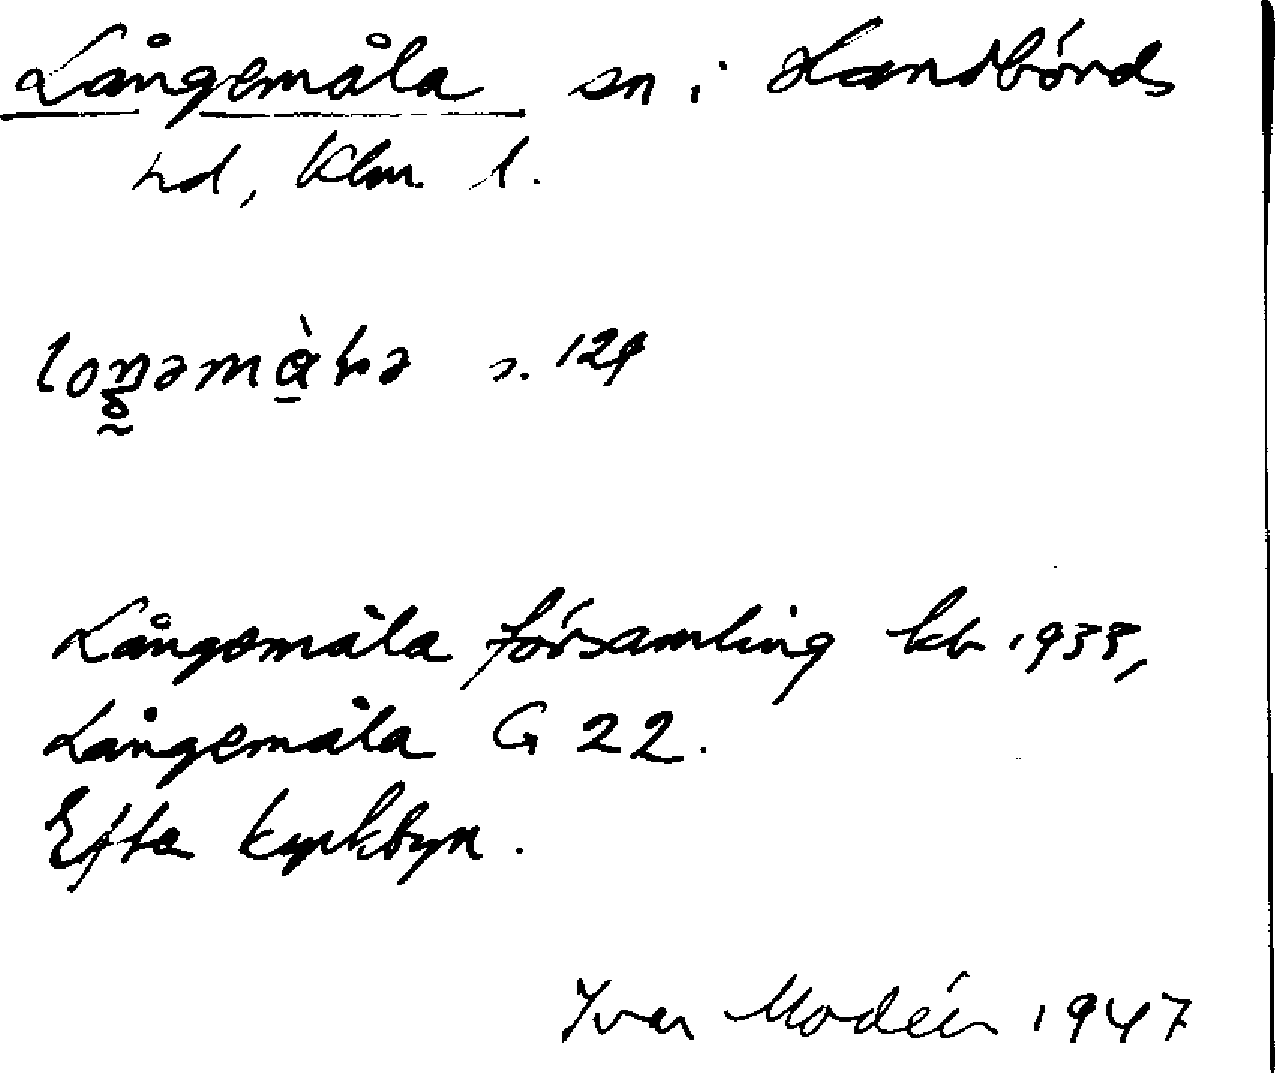 Långemåla sn i Handbörds
hd, Klm. l.
s. 129
Långemåla församling kb 1933,
Långemåla G 22.
Efter kyrkbyn.
Ivar Modéer 1947